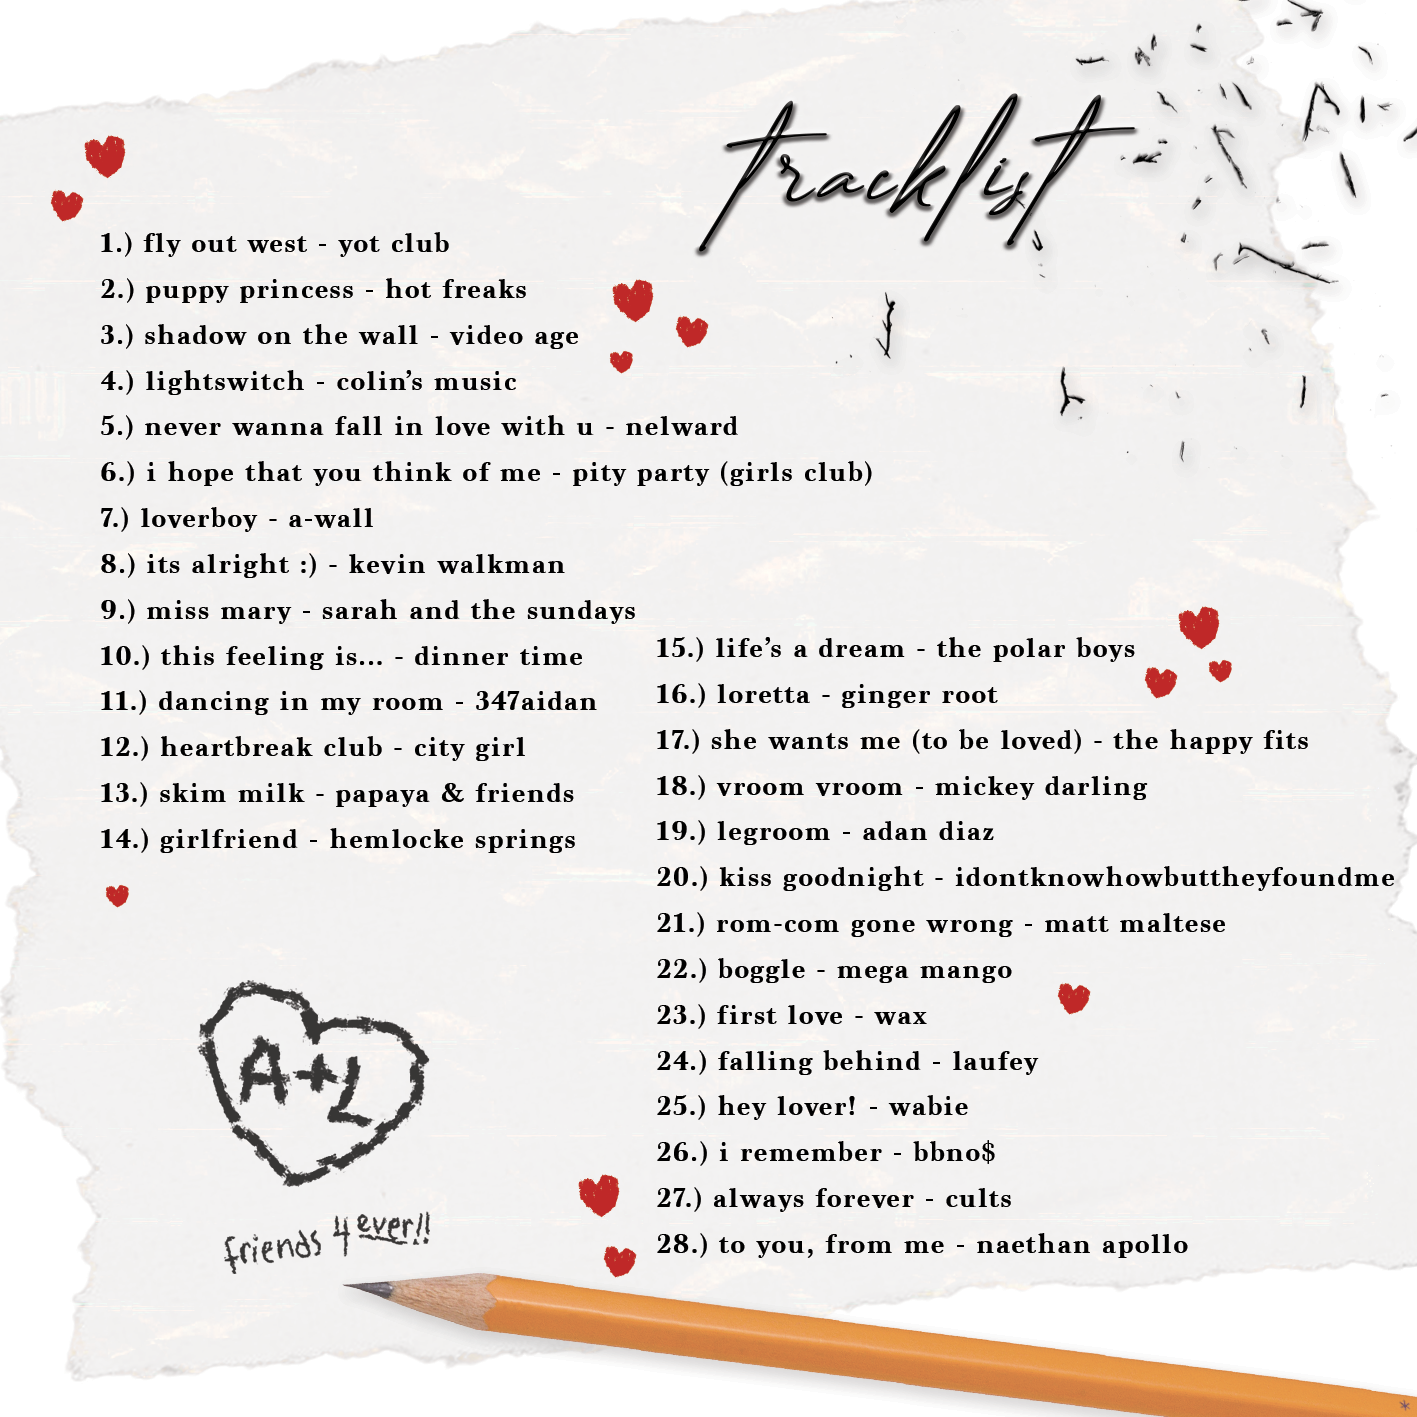 tracklist
1.) fly out west - yot club
2.) puppy princess - hot freaks
3.) shadow on the wall - video age
4.) lightswitch - colin's music
5.) never wanna fall in love with u - nelward
6.) i hope that you think of me - pity party (girls club)
7.) loverboy - a-wall
8.) its alright :) - kevin walkman
9.) miss mary - sarah and the sundays
10.) this feeling is... - dinner time
11.) dancing in my room - 347aidan
12.) heartbreak club - city girl
13.) skim milk - papaya & friends
14.) girlfriend - hemlocke springs
15.) life's a dream - the polar boys
16.) loretta - ginger root
17.) she wants me (to be loved) - the happy fits
18.) vroom vroom - mickey darling
19.) legroom - adan diaz
20.) kiss goodnight - idontknowhowbuttheyfoundme
21.) rom-com gone wrong - matt maltese
22.) boggle - mega mango
23.) first love - wax
24.) falling behind - laufey
25.) hey lover! - wabie
26.) i remember - bbno$
27.) always forever - cults
28.) to you, from me - naethan apollo
A+L
friends 4 ever!!